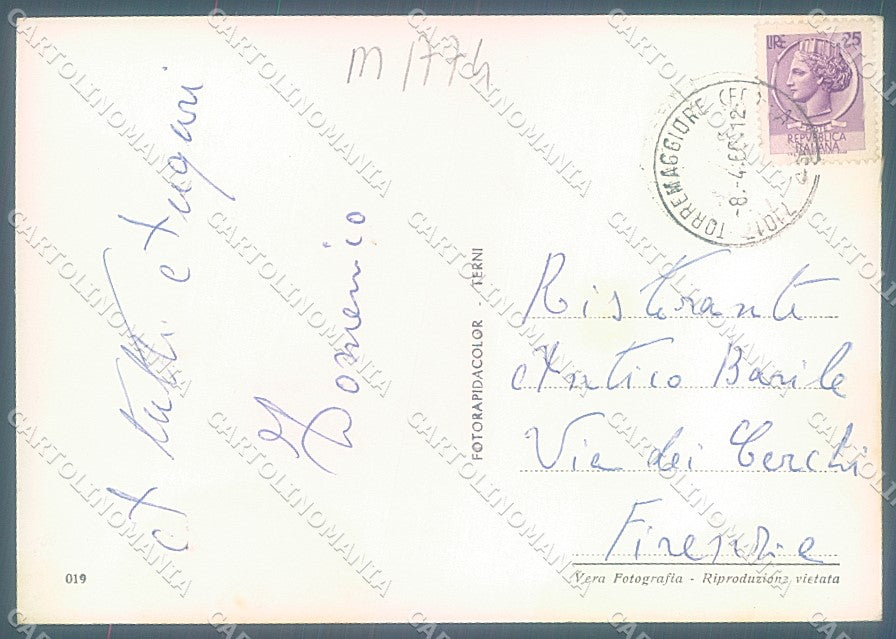 m 1774
A tutti et auguri
Domenico
FOTORAPIDACOLOR - TERNI
LIRE 25
POSTE
REPVBBLICA
ITALIANA
TORREMAGGIORE (FG)
71017
Ristorante
Antico Barile
Via dei Cerchi
Firenze
019
Vera Fotografia - Riproduzione vietata
CARTOLINOMANIA